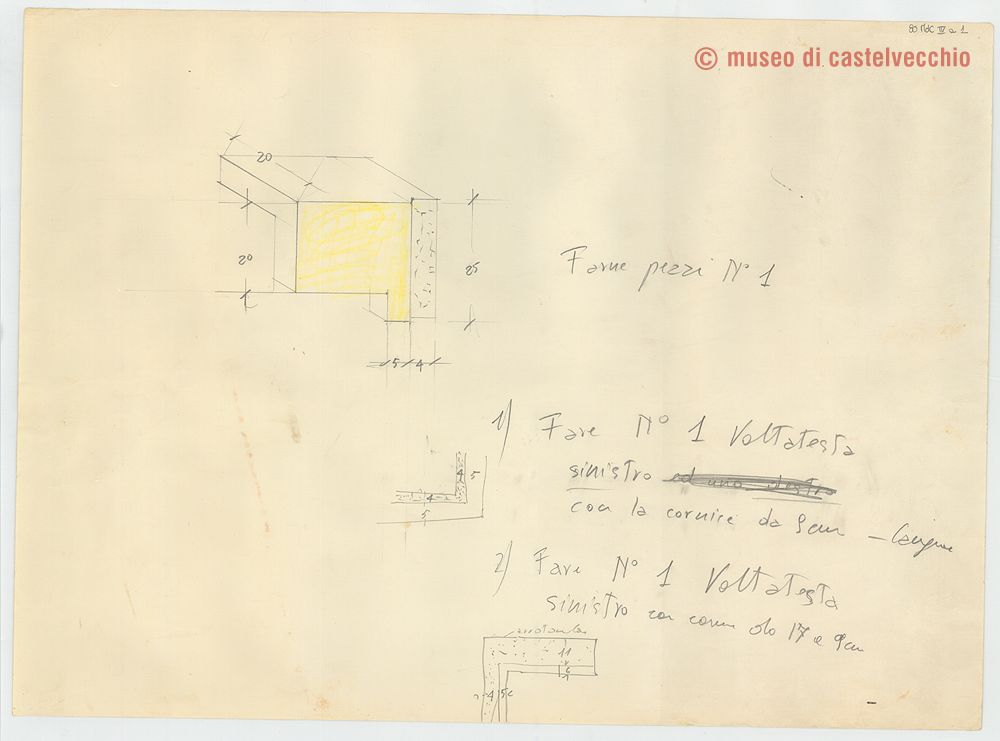 80 MdC IV a 1
© museo di castelvecchio
20
20
25
5 4
Farne pezzi N° 1
1) Fare N° 1 Voltatesta
sinistro ed uno destro
con la cornice da 9 cm –
4 5
4
5
2) Fare N° 1 Voltatesta
sinistro con 17 e 9 cm
11
4 5